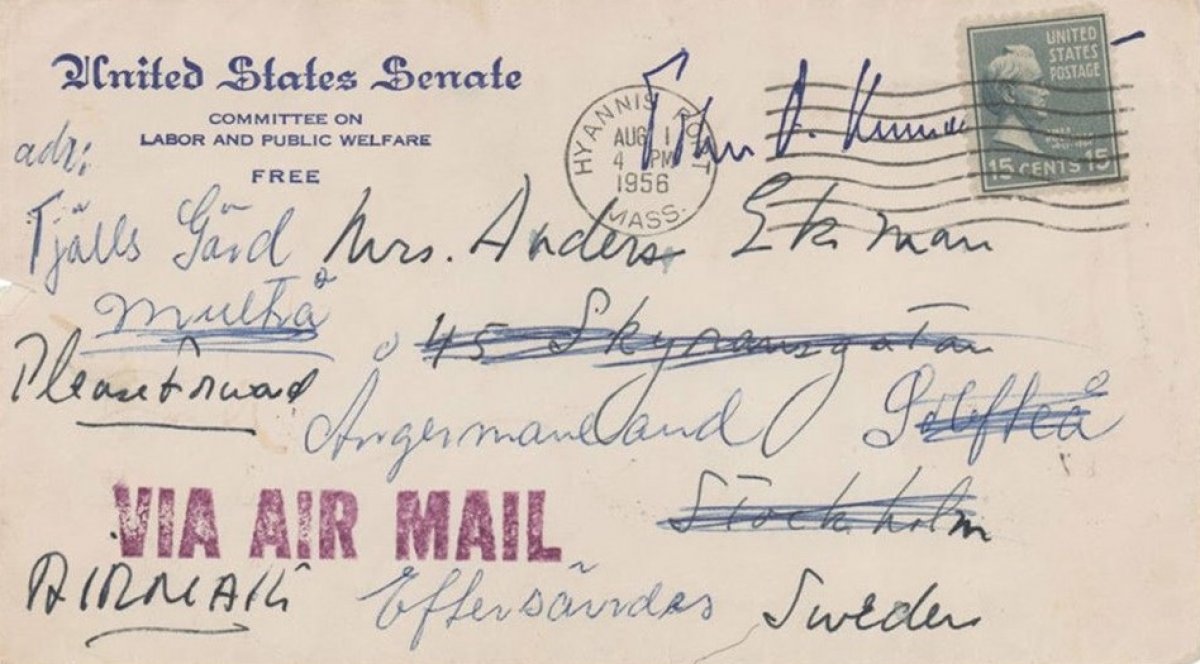 United States Senate
COMMITTEE ON
LABOR AND PUBLIC WELFARE
FREE
HYANNIS PORT
AUG 1
4 PM
1956
MASS.
John F. Kennedy
UNITED
STATES
POSTAGE
15 CENTS 15
adr:
Tjälls Gård
Multrå
Mrs. Anders Ekman
45 Skyransgatan
Please Forward
Ångermanland
Stockholm
VIA AIR MAIL
AIRMAIL
Eftersändes
Sweden